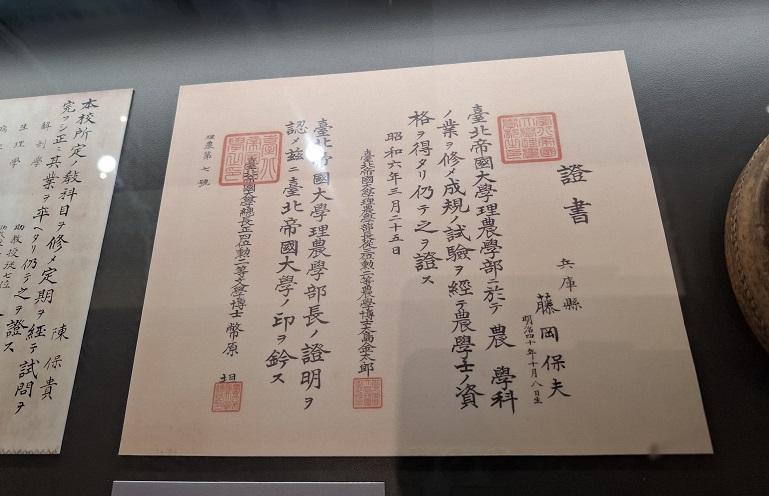 證書
兵庫縣
藤岡保夫
明治四十年十月八日生
臺北帝國大學理農學部ニ於テ農學科
ノ業ヲ修メ成規ノ試驗ヲ經テ農學士ノ資
格ヲ得タリ仍テ之ヲ證ス
昭和六年三月二十五日
臺北帝國大學理農學部長從三位勳二等農學博士大島金太郎
臺北帝國大學理農學部長ノ證明ヲ
認メ茲ニ臺北帝國大學ノ印ヲ鈐ス
臺北帝國大學總長正四位勳二等文學博士幣原坦
理農第七號
陳保貴
本校所定ノ教科目ヲ修メ定期ヲ經テ試問ヲ
完ッシ正ニ其業ヲ卒ヘタリ仍テ之ヲ證ス
解剖學
生理學
助教授從七位